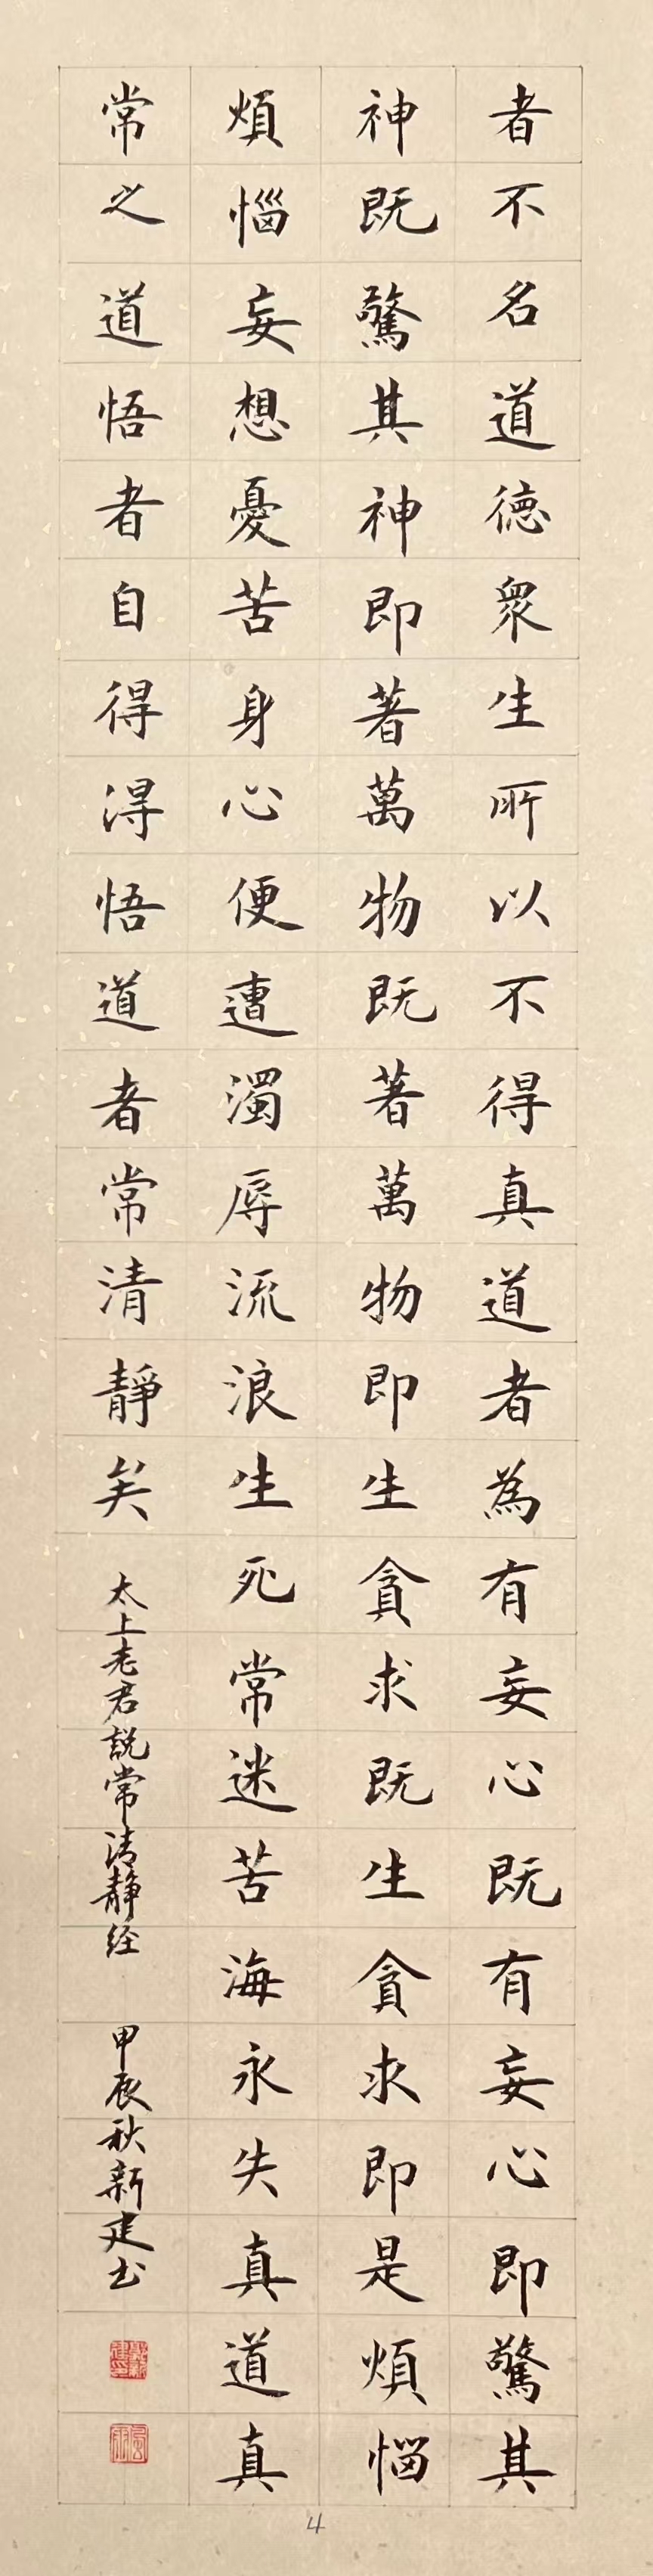 者不名道德衆生所以不得真道者為有妄心既有妄心即驚其
神既驚其神即著萬物既著萬物即生貪求既生貪求即是煩惱
煩惱妄想憂苦身心便遭濁辱流浪生死常迷苦海永失真道真
常之道悟者自得得悟道者常清靜矣
太上老君説常清静经 甲辰秋新建书
4